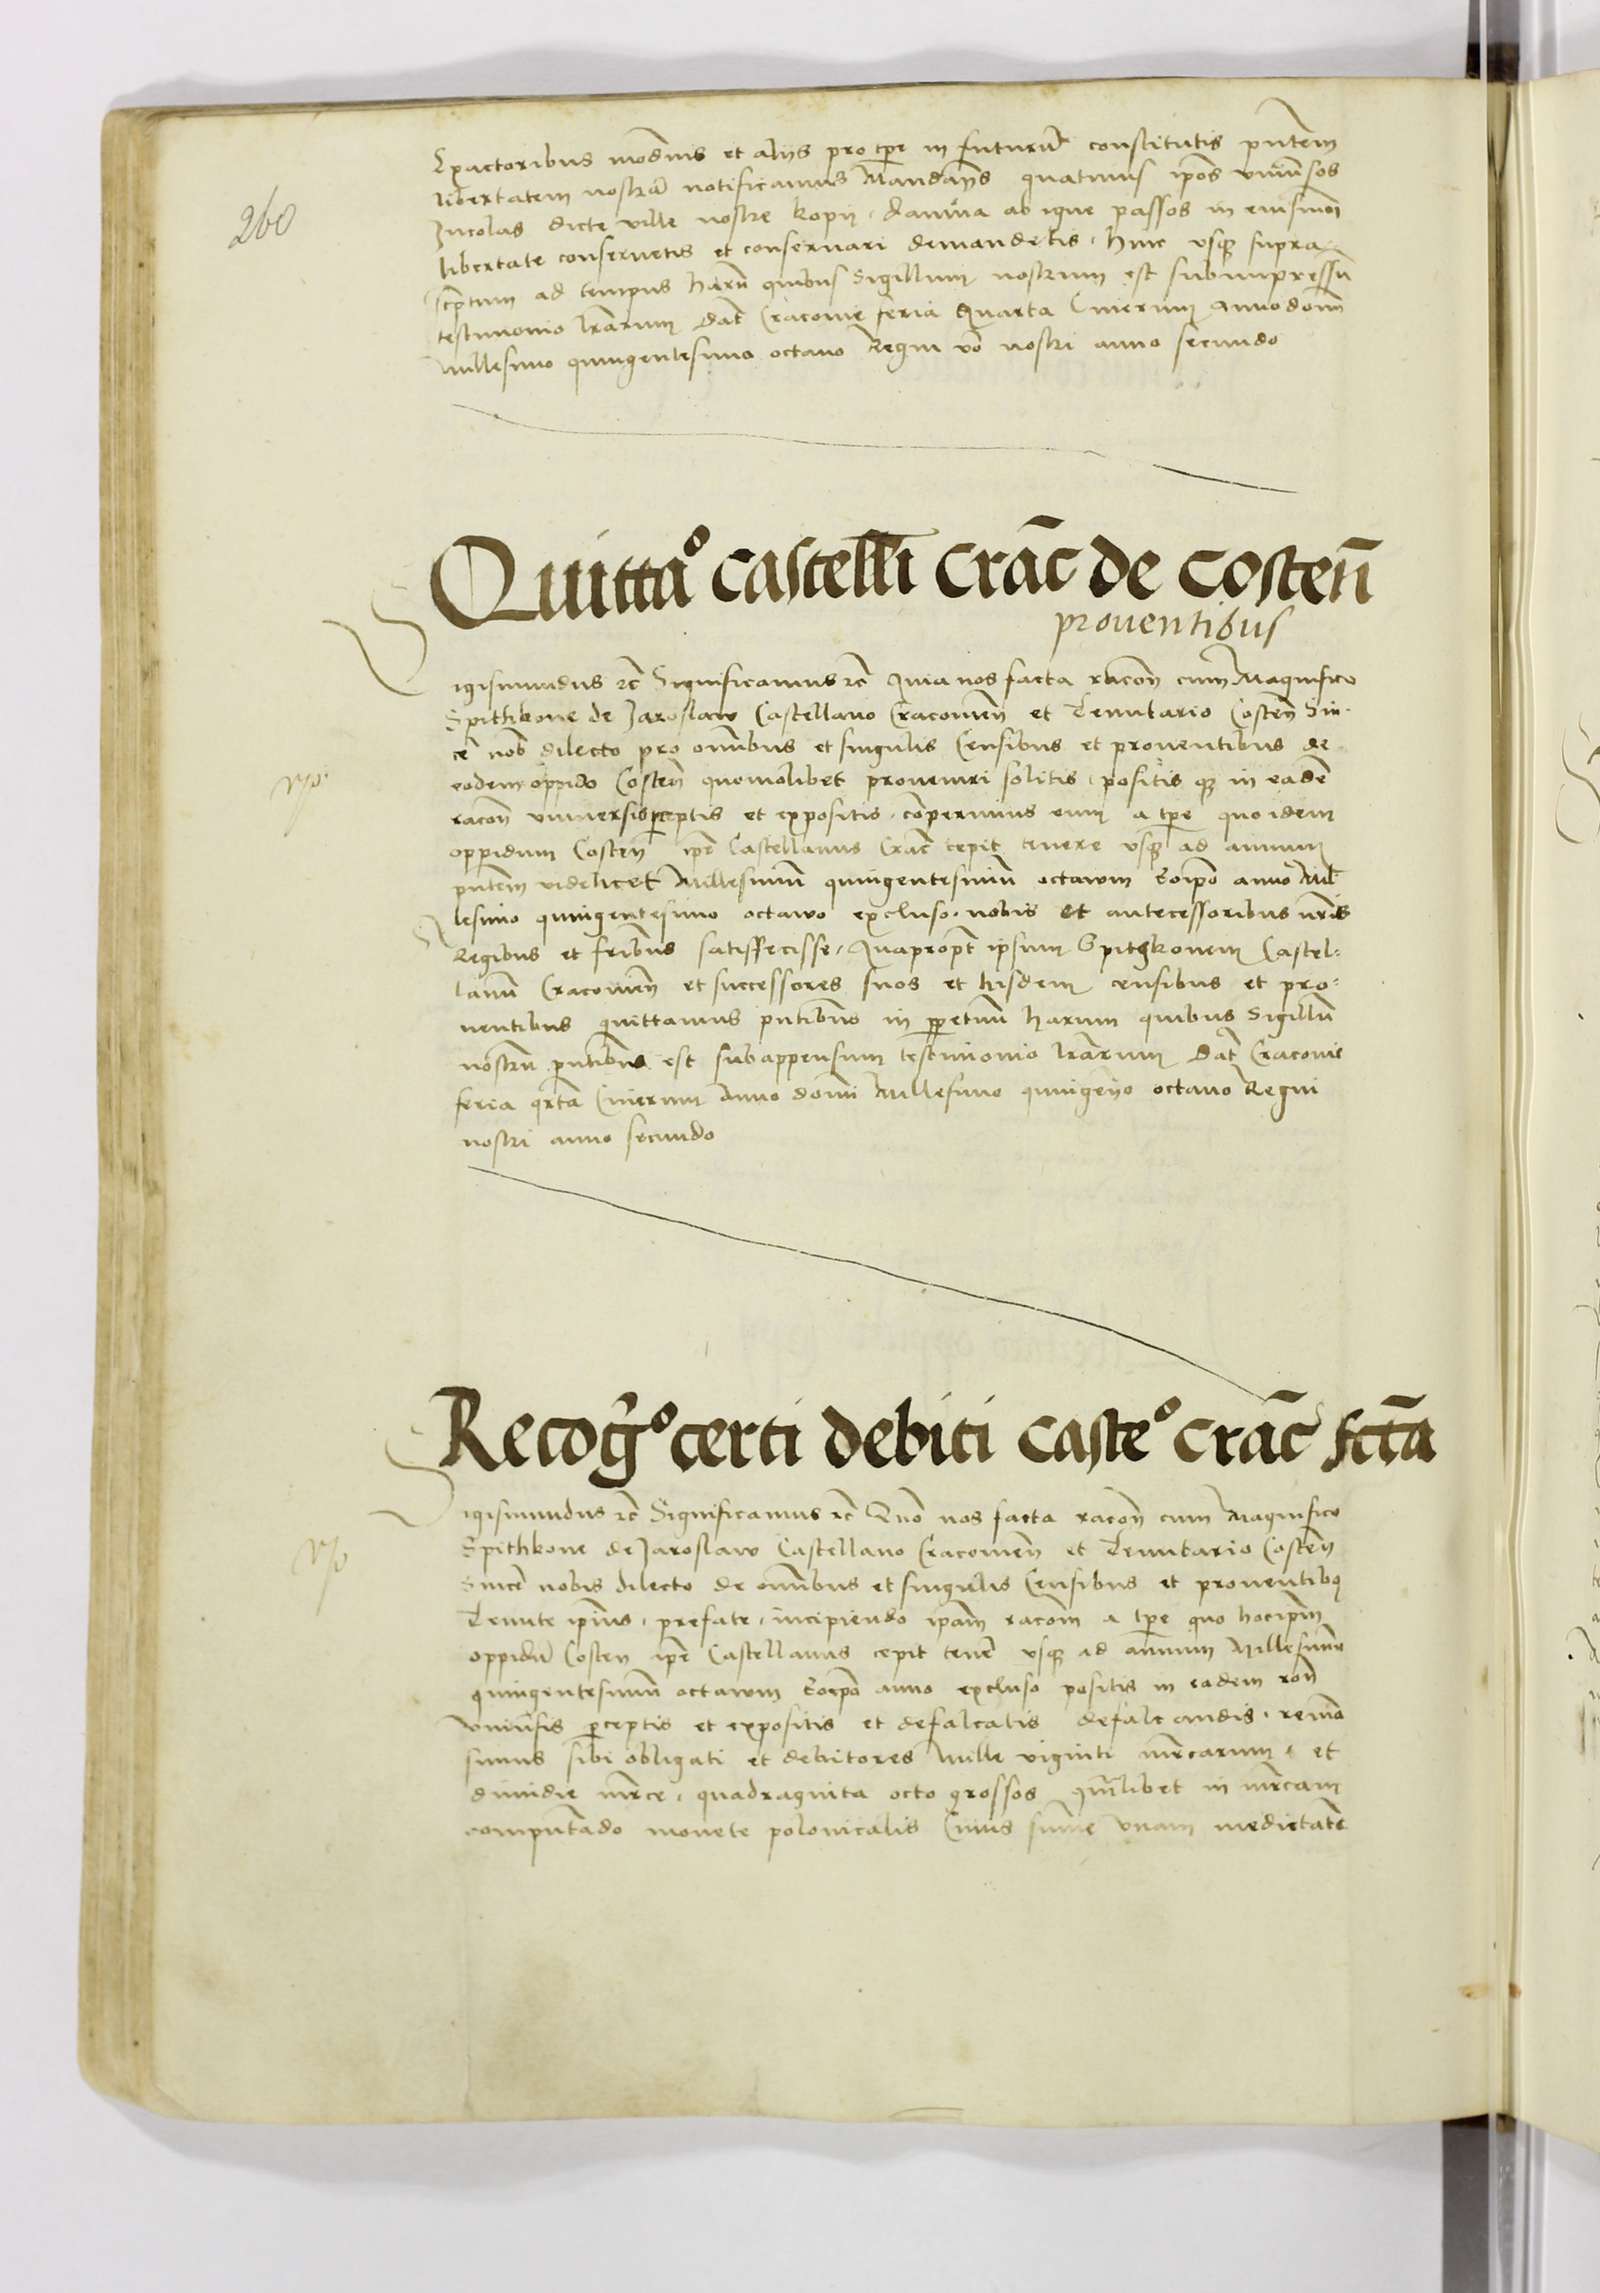 260
Exactoribus modernis et aliis pro tpe in futurū constitutis pntem
libertatem nostrā notificamus Mandan̄s quatinus ipōs vniūsos
Incolas dicte ville nostre kopy. damna ab igne passos in eiusmoī
libertate conseruetis et conseruari demandetis. hinc vsqȝ supra
scptum ad tempus harū quibus Sigillum nostrum est subimpressū
testimonio lrārum Dat̄ Cracouie feria Quarta Cinerum Anno domī
millesimo quingentesimo octauo Regni vō nostri anno secundo
Quitta͞o castellī crac̄ de costen̄
prouentibus
Sigismundus ꝛc̄ Significamus ꝛc̄ Quia nos facta racon̄ cum Magnifico
Spithkone de Jaroslaw Castellano Cracouien̄ et Tenutario Costen̄ Sin-
cē nob̄ dilecto pro omībus et singulis Censibus et prouentibus de
eodem oppido Costen̄ quomōlibet proueniri solitis. positis qȝ in eadē
racon̄ vniuersis pceptis et expositis. compermus eum a tpe quo idem
oppidum Costen̄ ipē Castellanus Crac̄ cepit tenere vsqȝ ad annum
pntem videlicet Millesimū quingentesimū octauum Eoipō anno Mil-
lesimo quingentesimo octauo excluso. nobis et antecessoribus nrīs
Regibus et frībus satisfecisse. Quapropt̄ ipsum Spitgkonem Castel-
lanū Cracouien̄ et successores suos et hisdem censibus et pro-
uentibus quittamus pntibus in ppetuū harum quibus Sigillū
nostrū pntibus est subappensum testimonio lrārum Dat̄ Cracouie
feria qrta Cinerum Anno domī Millesimo quingenio octauo Regni
nostri anno secundo
Recog͞o certi debiti caste͞o crac̄ fctā
Sigismundus ꝛc̄ Significamus ꝛc̄ Quō nos facta racon̄ cum Magnifico
Spithkone de Jaroslaw Castellano Cracouien̄ et Tenutario Costen̄
Sincē nobis dilecto de omībus et singulis Censibus et prouentibȝ
Tenute ipius. prefate. incipiendo ipām racōm a tpe quo hocipm̄
oppidū Costen ipē Castellanus cepit tenē vsqȝ ad annum Millesimum
quingentesimū octauum Eoipō anno excluso positis in eadem rōn
vniūsis pceptis et expositis et defalcatis defalcandis. remā
simus sibi obligati et debitores Mille viginti mrcarum. et
dimidie mrce. quadraginta octo grossos qmlibet in mrcam
computādo monete polonicalis Cuius sūme vnam medietatē